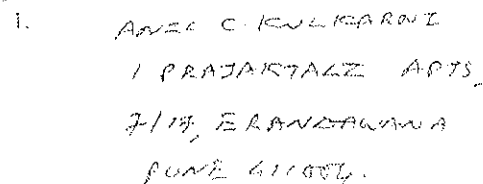 1. ANIL C. KULKARNI
1 PRAJAKTALI APTS
7/17, ERANDAWANA
PUNE 411004.